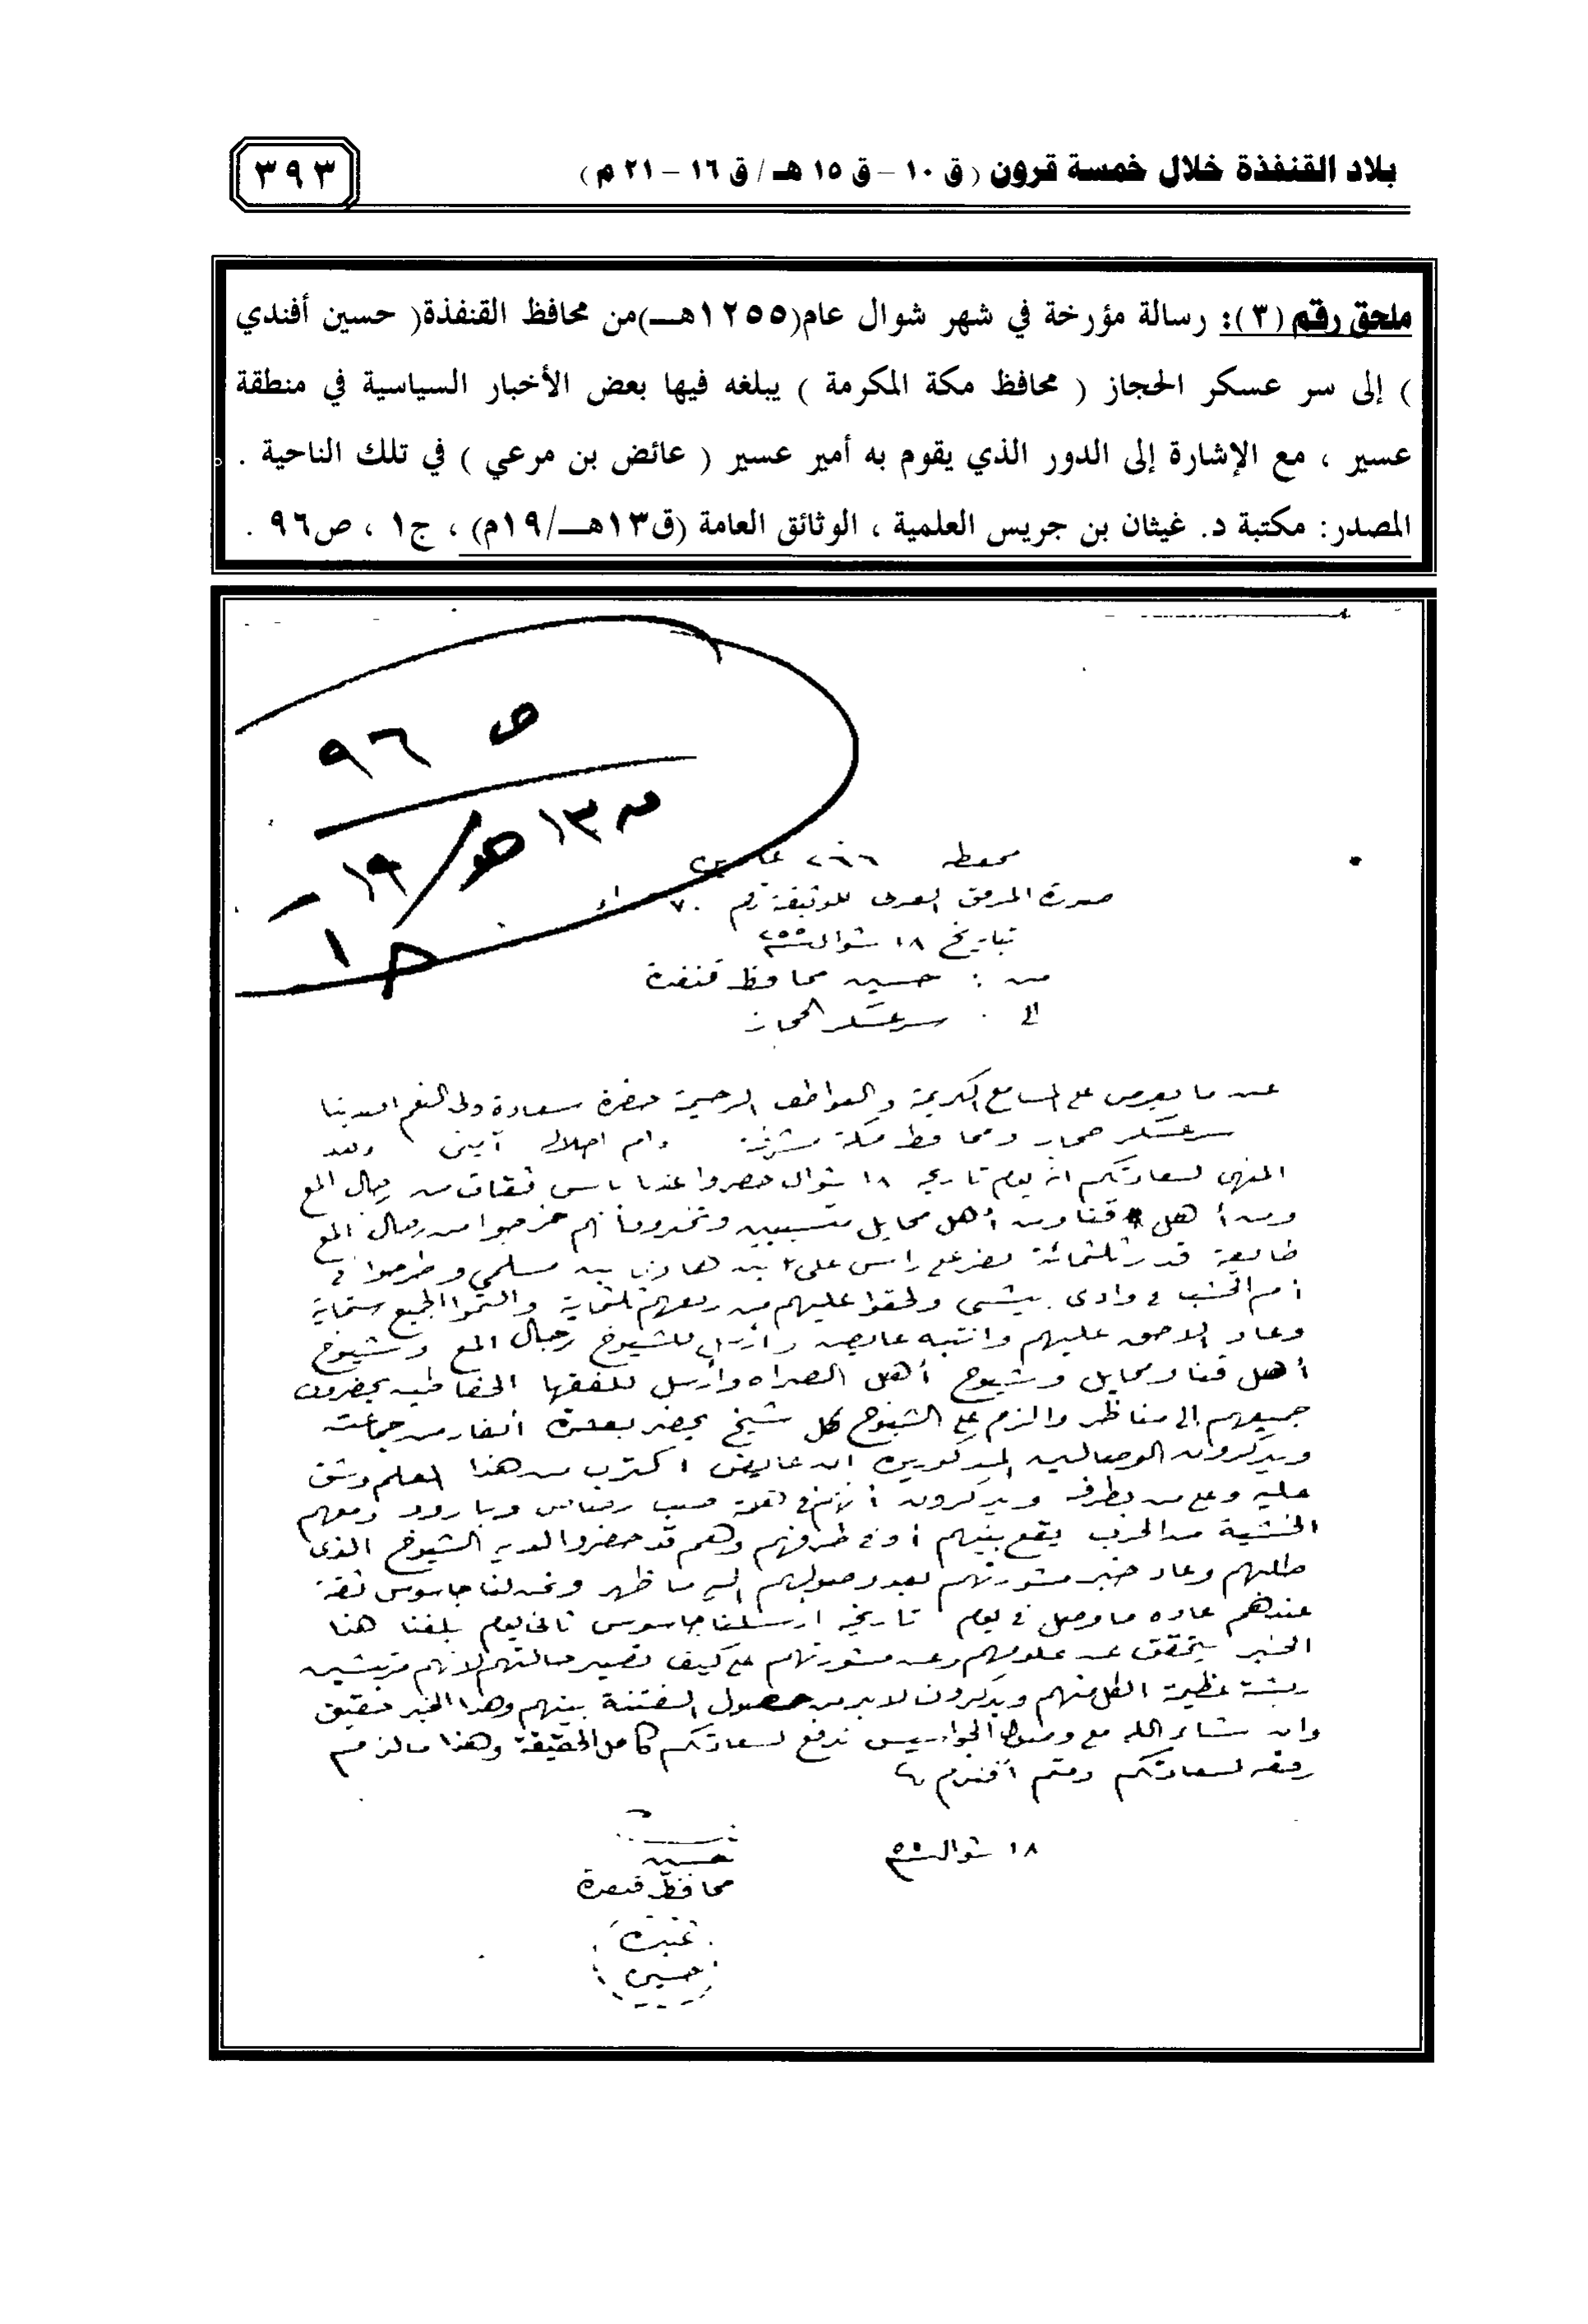 بلاد القنفذة خلال خمسة قرون (ق ١٠ – ق ١٥ هـ / ق ١٦ – ٢١ م)
٣٩٣
ملحق رقم (٣): رسالة مؤرخة في شهر شوال عام(١٢٥٥هـ)من محافظ القنفذة( حسين أفندي
) إلى سر عسكر الحجاز ( محافظ مكة المكرمة ) يبلغه فيها بعض الأخبار السياسية في منطقة
عسير ، مع الإشارة إلى الدور الذي يقوم به أمير عسير ( عائض بن مرعي ) في تلك الناحية .
المصدر: مكتبة د. غيثان بن جريس العلمية ، الوثائق العامة (ق١٣هـ/١٩م) ، ج١ ، ص٩٦ .
ص ٩٦
ق ١٣هـ/١٩
ج ١
محفظه ٢٦٦ عابدين
صورة المرفق العربى للوثيقة رقم ٧٠
بتاريخ ١٨ شوال سنة ٢٥٥
من : حسين محافظ قنفدة
الى سر عسكر الحجاز
عند ما يعرض على المسامع الكريمة والعواطف الرحيمة حضرة سعادة ولى النعم افندينا
سر عسكر حجاز ومحافظ مكة مشرفة دام اجلاله آمين وبعد
المنهى لسعادتكم انه يوم تاريخه ١٨ شوال حضروا عندنا ناس ثقات من رجال المع
ومن أهل قنا ومن أهل محايل متسببين وتخبرونا انهم خرجوا من رجال المع
قدر ثلثمائة نفر على راس على بن مسلمي وطرحوا في
أم الخشب في وادى بيشى ولحقوا عليهم من ربعهم ثلثماية والتموا الجميع ستماية
وعاد عليهم وانتبه عايض وأرسل للشيوخ رجال المع وشيوخ
أهل قنا ومحايل وشيوخ أهل السراه وأرسل للفقها يحضرون
جميعهم الى مناظر والزم على الشيوخ كل شيخ يحضر بعشرة أنفار من جماعته
ويذكرون الوصالين المذكورين ان عايض اكترب من هذا العلم وشق
عليه وعلى من بطرفه ويذكرون رصاص وبارود ومعهم
الخشية من الحرب يقع بينهم أو في طرفهم وهم قد حضروا لديه الشيوخ الذى
طلبهم وعاد خبر مشورتهم بعد وصولهم الى ما ظهر ونحن لنا جاسوس ثقة
عندهم عاده ما وصل في يوم تاريخه ارسلنا جاسوس ثانى يوم بلغنا هذا
الخبر يتحقق عن علومهم وعن مشورتهم على كيف تصير حالتهم لانهم
عظيمة الكل منهم ويذكرون لابد من حصول الفتنة بينهم وهذا الخبر حقيق
وان شاء الله مع وصول الجواسيس نرفع لسعادتكم كامل الحقيقة وهذا ما لزم
رفعه لسعادتكم ودمتم أفندم
١٨ شوال سنة ٥٥
حسين
محافظ قنفدة
حسين